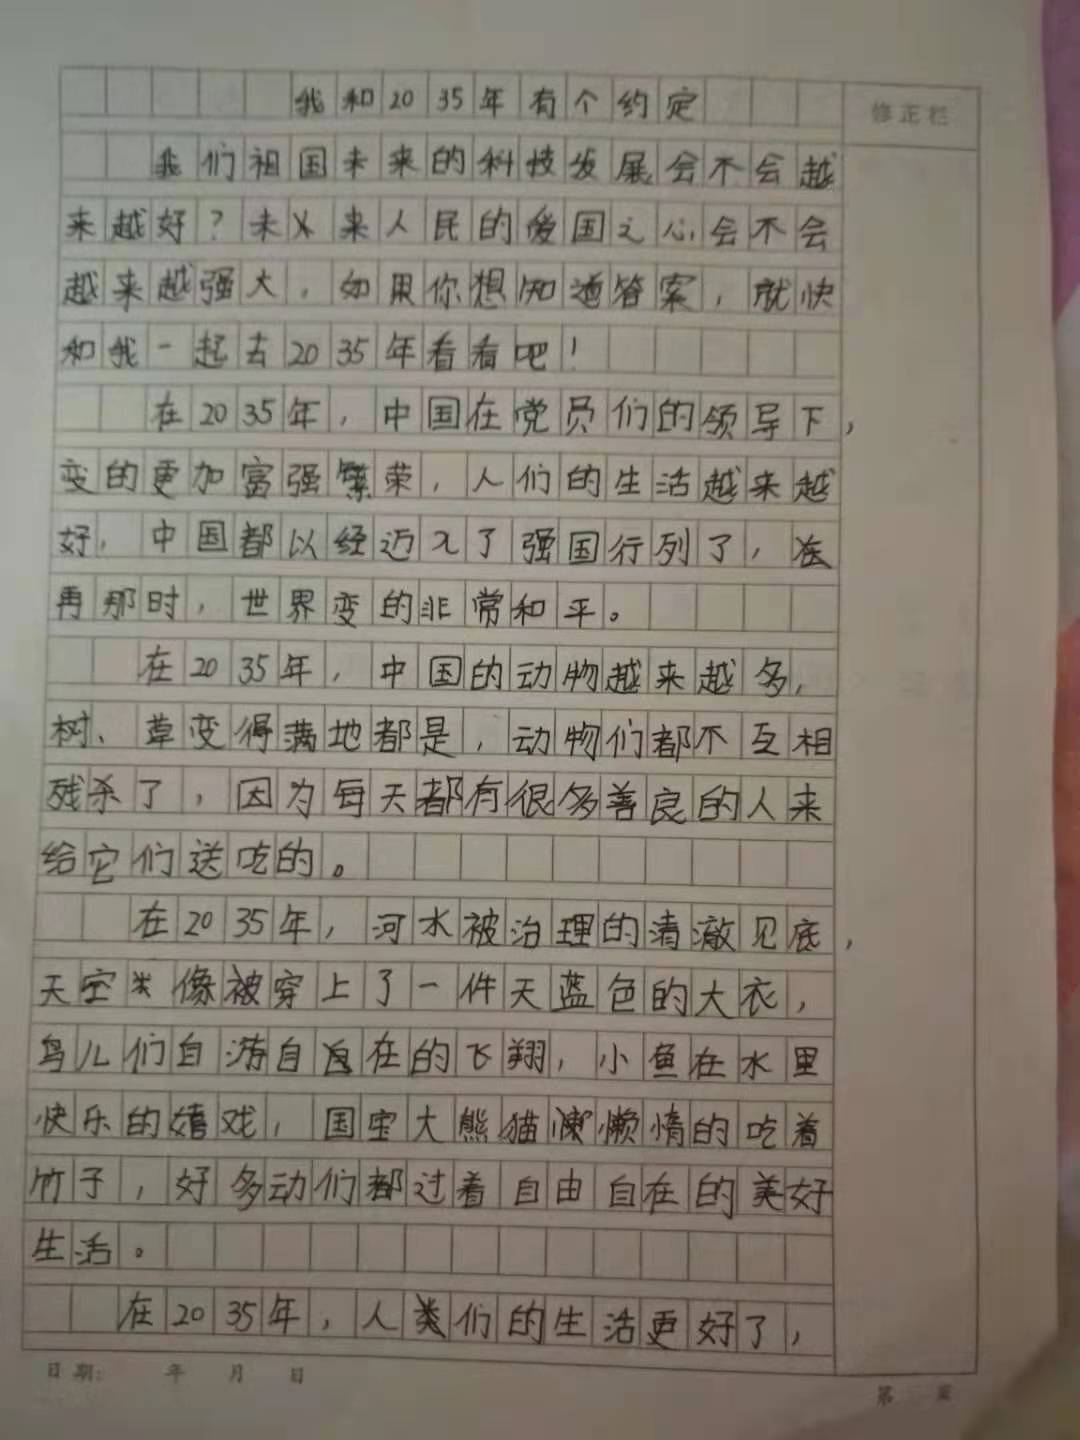 我和2035年有个约定
修正栏
我们祖国未来的科技发展会不会越
来越好？未来人民的爱国之心会不会
越来越强大，如果你想知道答案，就快
和我一起去2035年看看吧！
在2035年，中国在党员们的领导下，
变的更加富强繁荣，人们的生活越来越
好，中国都以经迈入了强国行列了，在
再那时，世界变的非常和平。
在2035年，中国的动物越来越多，
树、草变得满地都是，动物们都不互相
残杀了，因为每天都有很多善良的人来
给它们送吃的。
在2035年，河水被治理的清澈见底，
天空像被穿上了一件天蓝色的大衣，
鸟儿们自游自在的飞翔，小鱼在水里
快乐的嬉戏，国宝大熊猫懒惰的吃着
竹子，好多动们都过着自由自在的美好
生活。
在2035年，人类们的生活更好了，
日期： 年 月 日
第 页